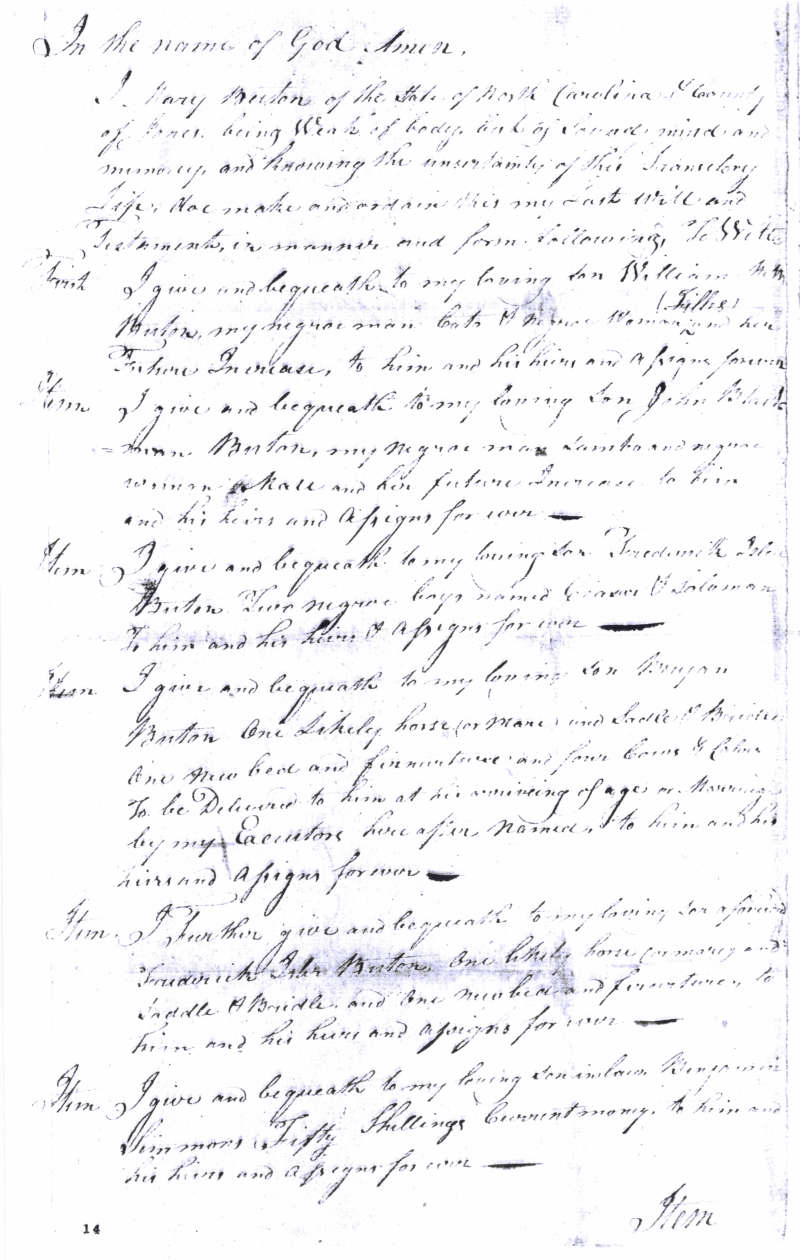 In the name of God Amen.
I Mary Buton of the State of North Carolina & County
of Jones. being Weak of body but of Sound mind and
memory, and knowing the uncertainty of this Transetory
Life, doe make and ordain this my Last Will and
Testament, in manner and form following, To Witt
First I give and bequeath to my loving Son William
(Fillis)
Buton, my negroe man Cato & Negroe Woman and her
Future Increase, to him and his heirs and assigns forever
Item I give and bequeath to my loving Son John Black
=man Buton, my negroe man Sambo and negroe
woman Kate and her future Increase to him
and his heirs and assigns for ever
Item I give and bequeath to my loving Son Frederick Isler
Buton Two negroe boys named & Soloman
To him and his heirs & assigns for ever
Item I give and bequeath to my loving Son Bryan
Buton One Likely horse (or Mare) and Sadle & Bridle
One New bed and firnurture and four Cows & Calves
To be Delivered to him at his arriveing of age or Marriage
by my Executors here after Named, to him and his
heirs and assigns for ever
Item. I Further give and bequeath to my loving Son aforesaid
Frederick Isler Buton One likely horse (or mare) and
Saddle & Bridle and One new bed and firnurture, to
him and his heirs and assigns for ever
Item I give and bequeath to my loving Son in law Benjamin
Simmons Fifty Shillings Current money, to him and
his heirs and assigns for ever
Item
14